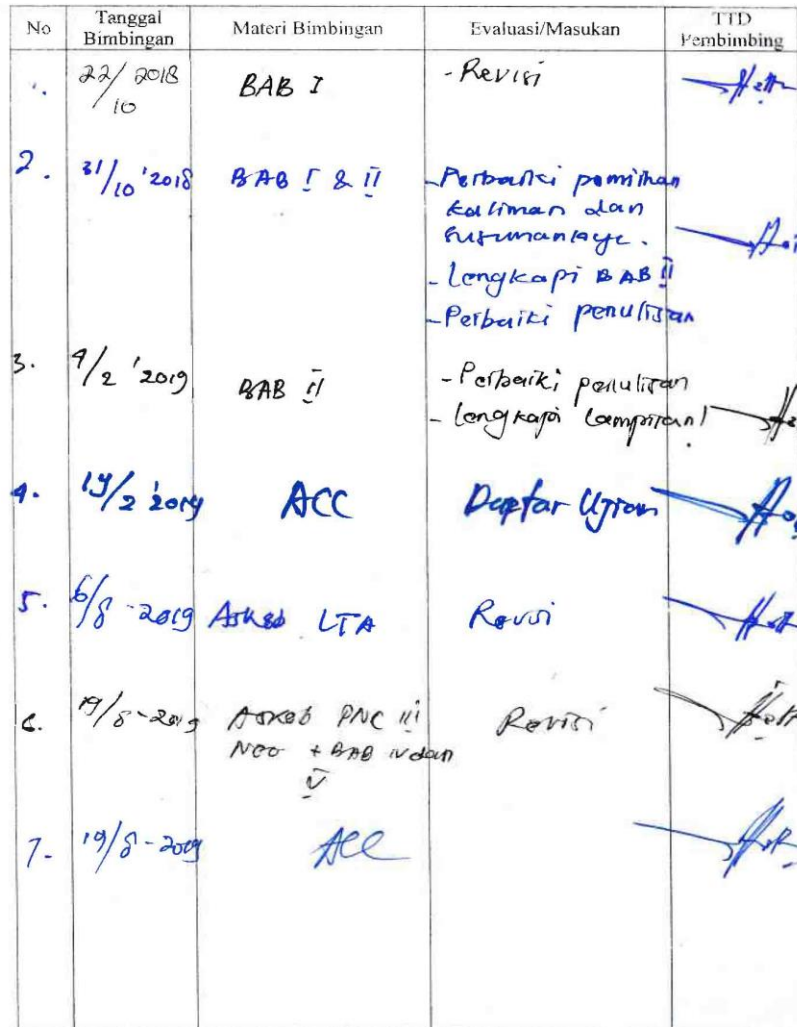 No Tanggal Bimbingan Materi Bimbingan Evaluasi/Masukan TTD Pembimbing
22/10 2018 BAB I - Revisi
2. 31/10 '2018 BAB I & II - Perbaiki pemilihan
kaliman dan
susunannya.
- Lengkapi BAB II
- Perbaiki penulisan
3. 4/2 '2019 BAB II - Perbaiki penulisan
- Lengkapi lampiran!
4. 19/2 '2019 ACC Daftar Ujian
5. 6/8 - 2019 Askeb LTA Revisi
6. 19/8 - 2019 Askeb PNC III Revisi
Neo + BAB IV dan
V
7. 19/8 - 2019 ACC